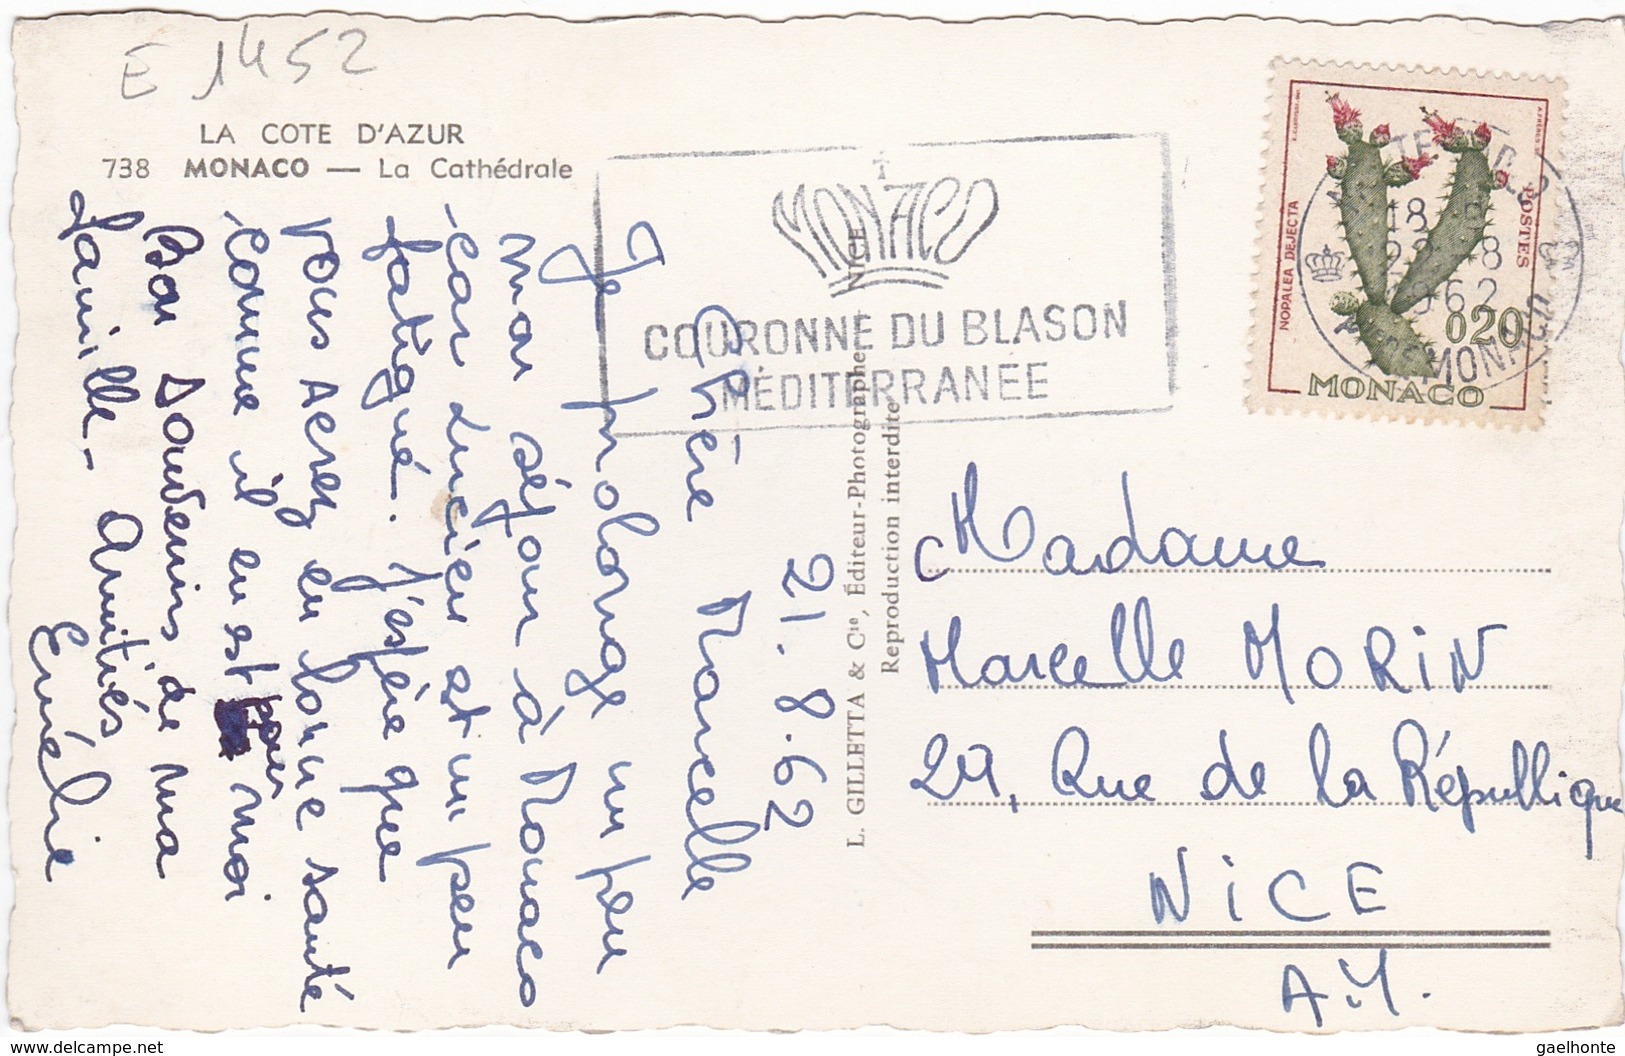 E 1452
LA COTE D'AZUR
738 MONACO — La Cathédrale
21.8.62
Chère Marcelle
Je prolonge un peu
mon séjour à Monaco
car Lucien est un peu
fatigué. J'espère que
vous serez en bonne santé
comme il en est pour moi
Bon souvenirs de ma
famille - Amitiés
L. GILLETTA & Cie, Éditeur-Photographe, NICE
Reproduction interdite
MONACO
COURONNE DU BLASON
MÉDITERRANÉE
NOPALEA DEJECTA
POSTES
0,20
MONACO
18
1962
MONACO
Madame
Marcelle MORIN
29, Rue de la République
NICE
A.M.
www.delcampe.net
gaelhonte